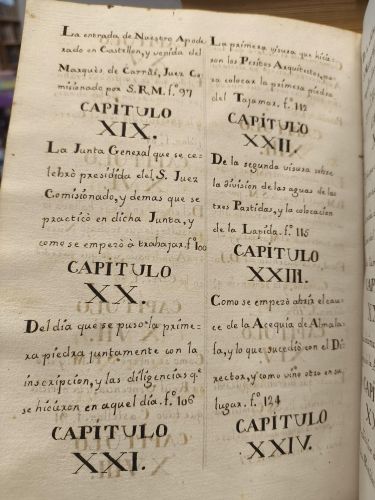 La entrada de Nuestro Apode
rado en Castellon, y venida del
Marquès de Carrús, Juez Co
misionado por S.R.M. fº 97
CAPÍTULO
XIX.
La Junta General que se ce=
lebrò presidida del S. Juez
Comisionado, y demas que se
practicò en dicha Junta, y
como se emperò à trabajar. fº 100
CAPÍTULO
XX.
Del dia que se puso la prime=
ra piedra juntamente con la
inscripcion, y las diligencias qᵉ
se hiciéron en aquel dia. fº 106
CAPÍTULO
XXI.
La primera visura que hicie
ron los Peritos Arquitectos, pa=
ra colocar la primera piedra
del Tajamar. fº 112
CAPÍTULO
XXII.
De la segunda visura sobre
la division de las aguas de las
tres Partidas, y la colocacion
de la Lapida. fº 115
CAPÍTULO
XXIII.
Como se emperò abrir el cau=
ce de la Acequia de Almala=
fa, y lo que sucediò con el Di
rector, y como vino otro en su
lugar. fº 124
CAPÍTULO
XXIV.